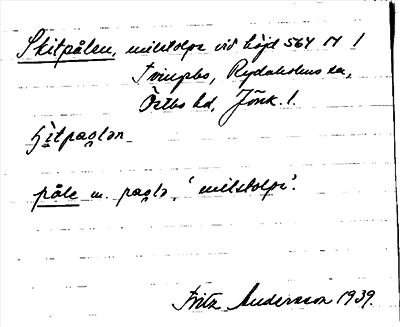 Skitpålen, milstolpe vid höjd 564 N 1
Tvingsbo, Rydaholms sn,
Östbo hd, Jönk. l.
ʃìtpaolən
påle m. paolə, 'milstolpe'.
Fritz Andersson 1939.